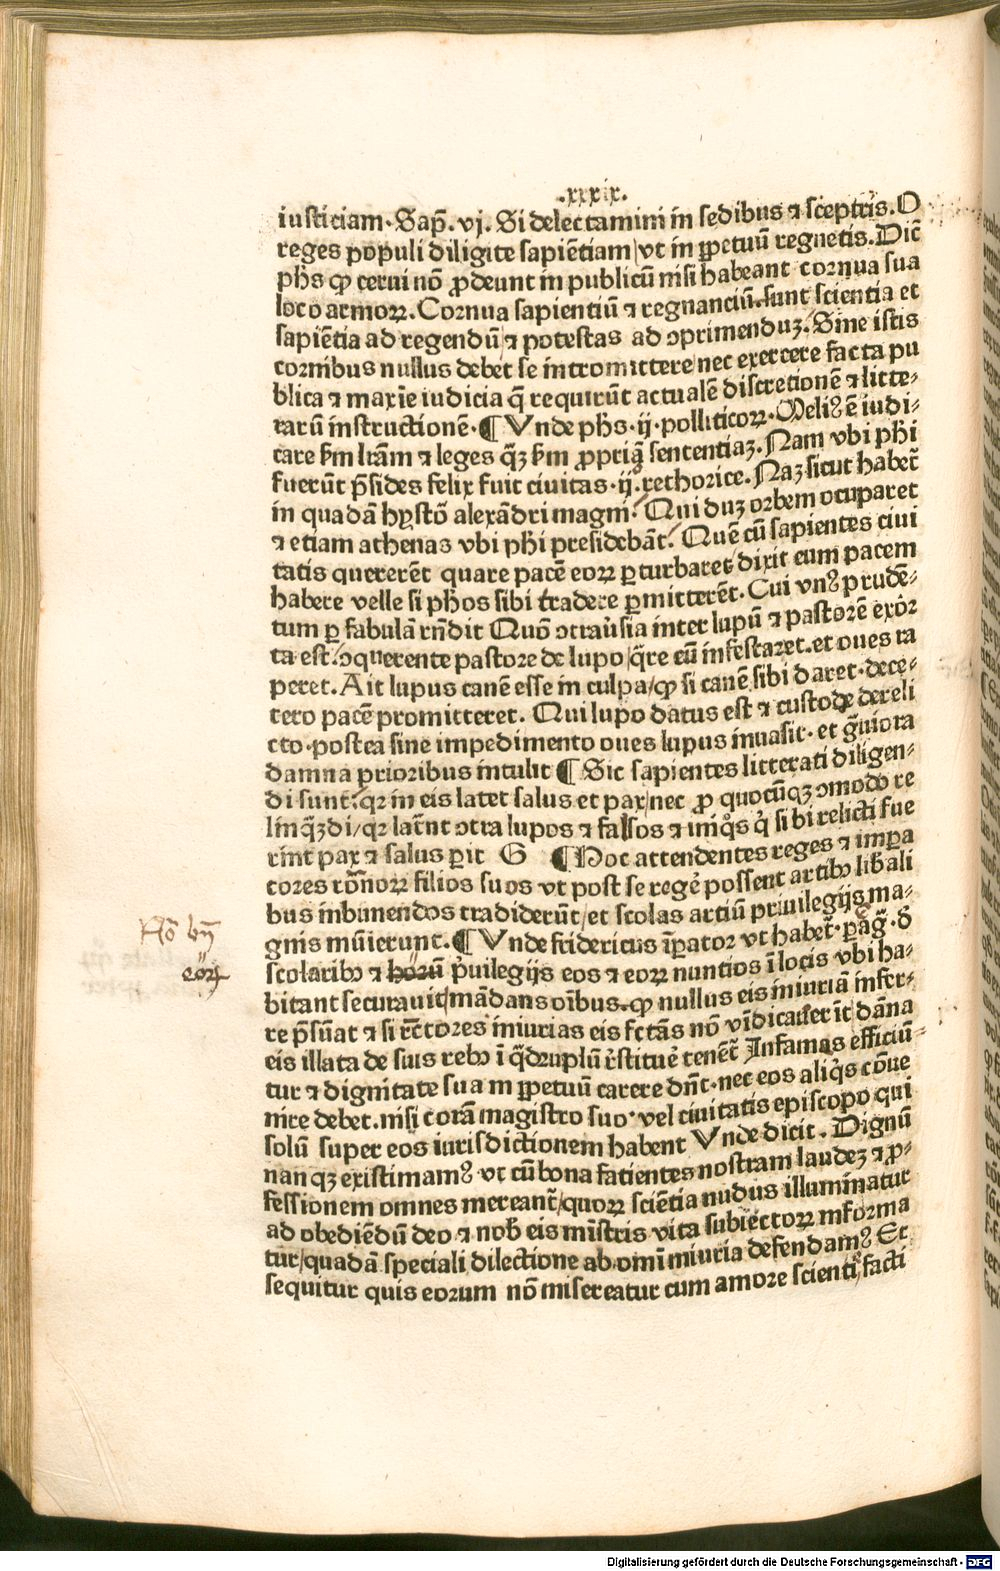 .xxxix.
iusticiam. Sap̄. vj. Si delectamini in sedibus ⁊ sceptris. O
reges populi diligite sapiētiam/vt in ꝑpetuū regnetis. Dic̄
ph̄s ꝙ cerui nō ꝓdeunt in publicū nisi habeant cornua sua
loco armoꝝ. Cornua sapientiū ⁊ regnanciū.sunt scientia et
sapiētia ad regendū/⁊ potestas ad ꝯprimenduꝫ. Sine istis
cornibus nullus debet se intromittere/nec exercere facta pu
blica ⁊ maxīe iudicia q̄ requirūt actualē discretionē ⁊ litte⸗
rarū instructionē. ¶ Vnde ph̄s. ij. polliticoꝝ. Meliꝰ ē iudi⸗
care km̄ lrām ⁊ leges qꝫ km̄ ꝓpriā sententiaꝫ. Nam vbi ph̄i
fuerūt p̄sides felix fuit ciuitas. ij. rethorice. Naꝫ sicut habet̄
in quadā hystō alexādri magni. Qui duꝫ orbem ocuparet
⁊ etiam athenas vbi ph̄i presidebāt. Quē cū sapientes ciui
tatis quererēt quare pacē eoꝝ ꝑturbaret/dixit eum pacem
habere velle si ph̄os sibi tradere ꝑmitterēt. Cui vnꝰ prudē⸗
tum ꝑ fabulā rn̄dit Quō ꝯtrau̇sia inter lupū ⁊ pastorē exor̄
ta est. ꝯquerente pastore de lupo/q̄re cū infestaret.et oues ra
peret. Ait lupus canē esse in culpa/ꝙ si canē sibi daret. dece⸗
tero pacē promitteret. Qui lupo datus est ⁊ custode dereli
cto.postea sine impedimento oues lupus inuasit. et gūiora
damna prioribus intulit ¶ Sic sapientes litterati diligen⸗
di sunt. qꝛ in eis latet salus et pax/nec ꝓ quocūqꝫ ꝯmodo re
linqꝫdi/qꝛ lat̄nt ꝯtra lupos ⁊ falsos ⁊ iniq̊s q̇ si bi relicti fue
rint pax ⁊ salus ꝑit G ¶ Hoc attendentes reges ⁊ impa
tores rōnoꝝ filios suos vt post se reģe possent artibꝰ lib̄ali
bus inbuendos tradiderūt/et scolas artiū priuilegijs ma⸗
gnis mūierunt. ¶ Vnde fridericus īꝑator vt habet̄. pāg̃. ð
scolaribꝰ ⁊ horū p̓uilegijs eos ⁊ eoꝝ nuntios ī locis vbi ha⸗
bitant securauit/mādans oībus. ꝙ nullus eis iniuriā infer⸗
re p̄sūat ⁊ si rc̄tores iniurias eis fctās nō vīdicauer īt dāna
eis illata de suis rebꝰ ī q̄druplū r̓stitue̓ tenet̄ Infamas efficiū⸗
tur ⁊ dignitate sua in ꝑpetuū carere dn̄t. nec eos aliq̇s cōue
nire debet. nisi corā magistro suo. vel ciuitatis episcopo qui
solū super eos iurisdictionem habent Vnde dicit. Dignū
nan qꝫ existimamꝰ vt cū bona facientes nostram laudeꝫ ⁊ ꝓ⸗
fessionem omnes mereant̄/quoꝝ sciētia nudus illuminatur
ad obediēdū deo ⁊ nob̄ eis mīstris vita subiectoꝝ informa
tur/quadā speciali dilectione ab omī iniuria defendamꝰ Et
sequitur quis eorum nō misereatur cum amore scientī facti
Hō bn̄
eōꝝ
Digitalisierung gefördert durch die Deutsche Forschungsgemeinschaft - DFG